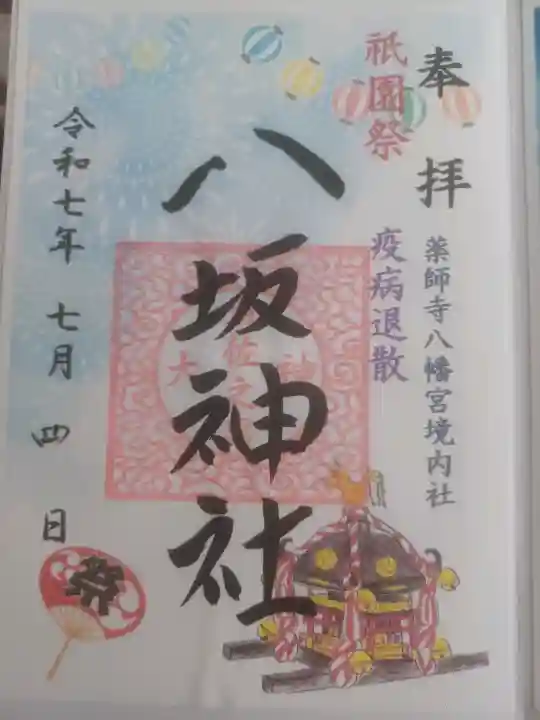 奉拝
薬師寺八幡宮境内社
祇園祭
疫病退散
八坂神社
令和七年 七月 四日
祭